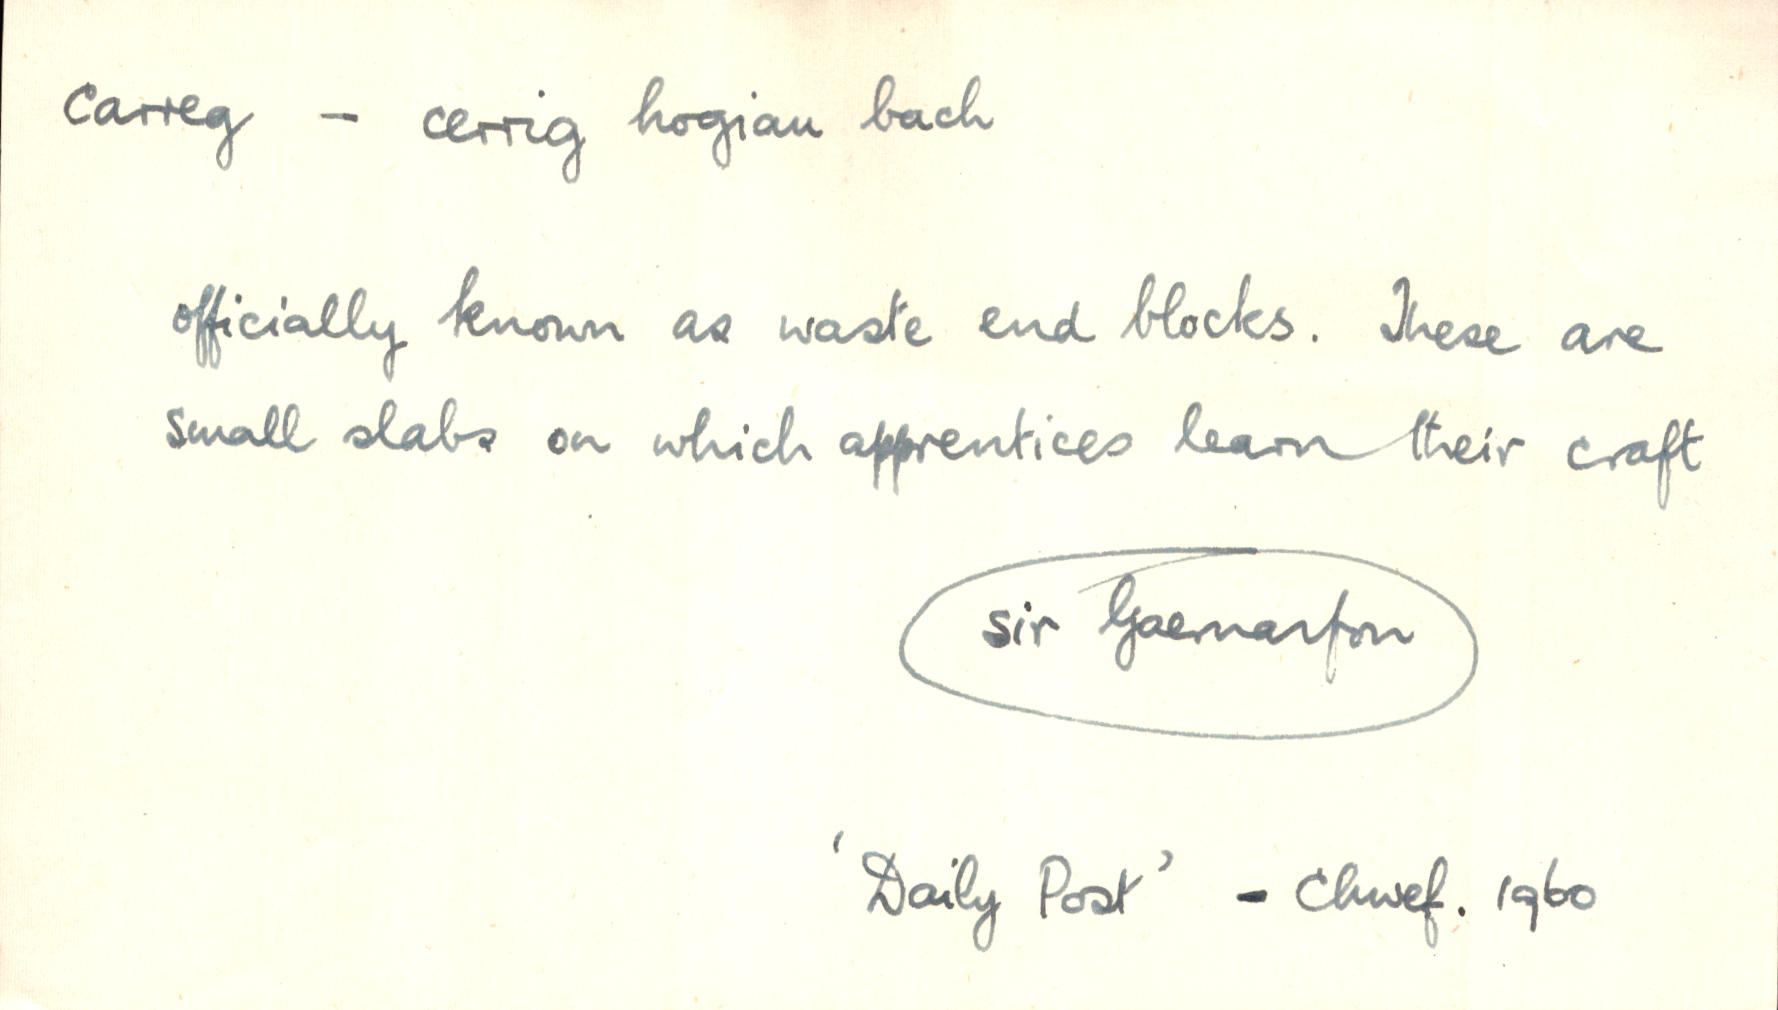 Carreg - cerrig hogiau bach
officially known as waste end blocks. These are
small slabs on which apprentices learn their craft
sir Gaernarfon
'Daily Post' - Chwef. 1960